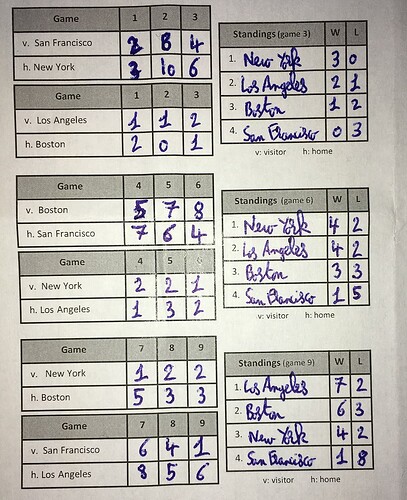 Game 1 2 3
v. San Francisco 2 8 4
h. New York 3 10 6
Game 1 2 3
v. Los Angeles 1 1 2
h. Boston 2 0 1
Standings (game 3) W L
1. New York 3 0
2. Los Angeles 2 1
3. Boston 1 2
4. San Francisco 0 3
v: visitor h: home
Game 4 5 6
v. Boston 5 7 8
h. San Francisco 7 6 4
Game 4 5 6
v. New York 2 2 1
h. Los Angeles 1 3 2
Standings (game 6) W L
1. New York 4 2
2. Los Angeles 4 2
3. Boston 3 3
4. San Francisco 1 5
v: visitor h: home
Game 7 8 9
v. New York 1 2 2
h. Boston 5 3 3
Game 7 8 9
v. San Francisco 6 4 1
h. Los Angeles 8 5 6
Standings (game 9) W L
1. Los Angeles 7 2
2. Boston 6 3
3. New York 4 2
4. San Francisco 1 8
v: visitor h: home